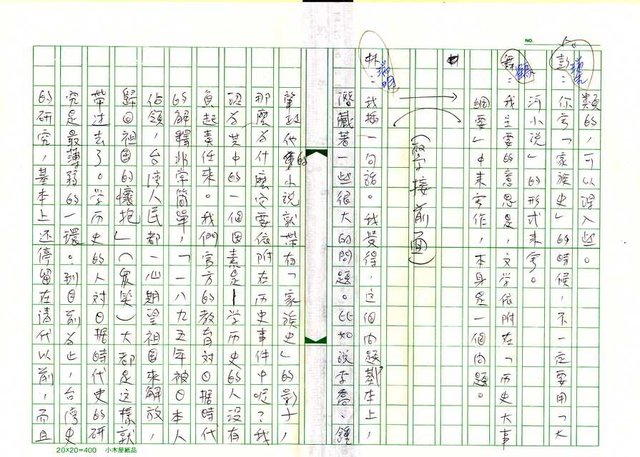 NO.
類的,可以深入些。
彭瑞金:你寫「家族史」的時候,不一定要用「大
河小說」的形式來寫。
舞鶴:我主要的意思是,文学依附在「历史大事
綱要」中來寫作,本身是一個问題。
(文字接前面)
林瑞明:我插一句話。我覺得,這個问題基本上,
潛藏著一些很大的问題。比如說李喬、鍾
肇政的小說就帶有「家族史」的影子,
那麼为什麼定要依附在历史事件中呢?我
認为其中的一個因素是—学历史的人沒有
負起責任來。我們官方的教育对日據時代
的解釋非常簡單,「一八九五年被日本人
佔領,台湾人民都一心期望祖國來解放,
歸回祖國的懷抱」(眾笑)大都是這樣就
帶过去了。学历史的人对日據時代史的研
究是最薄弱的一環。到目前为止,台湾史
的研究,基本上还停留在清代以前,而且
20×20=400 小木屋紙品